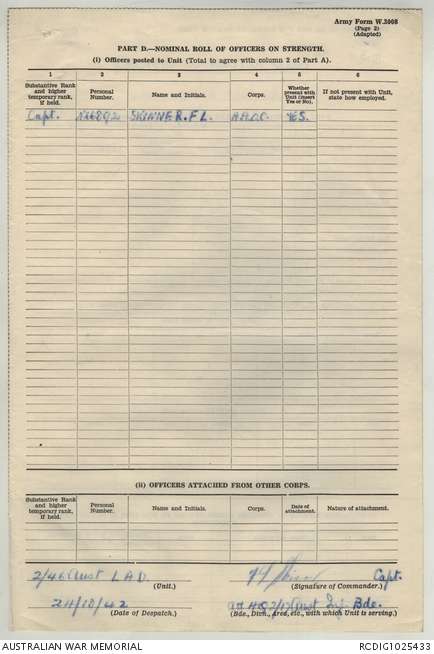 Army Form W.3008
(Page 2)
(Adapted)
PART D.—NOMINAL ROLL OF OFFICERS ON STRENGTH.
(i) Officers posted to Unit (Total to agree with column 2 of Part A).
1 2 3 4 5 6
Substantive Rank and higher temporary rank, if held. Personal Number. Name and Initials. Corps. Whether present with Unit (insert Yes or No). If not present with Unit, state how employed.
Capt. SKINNER. F L. YES.
(ii) OFFICERS ATTACHED FROM OTHER CORPS.
Substantive Rank and higher temporary rank, if held. Personal Number. Name and Initials. Corps. Date of attachment. Nature of attachment.
2/46 Aust L A D. Capt.
(Unit.) (Signature of Commander.)
24/10/42 att HQ Aust Inf Bde.
(Date of Despatch.) (Bde., Divn., Area, etc., with which Unit is serving.)
AUSTRALIAN WAR MEMORIAL RCDIG1025433